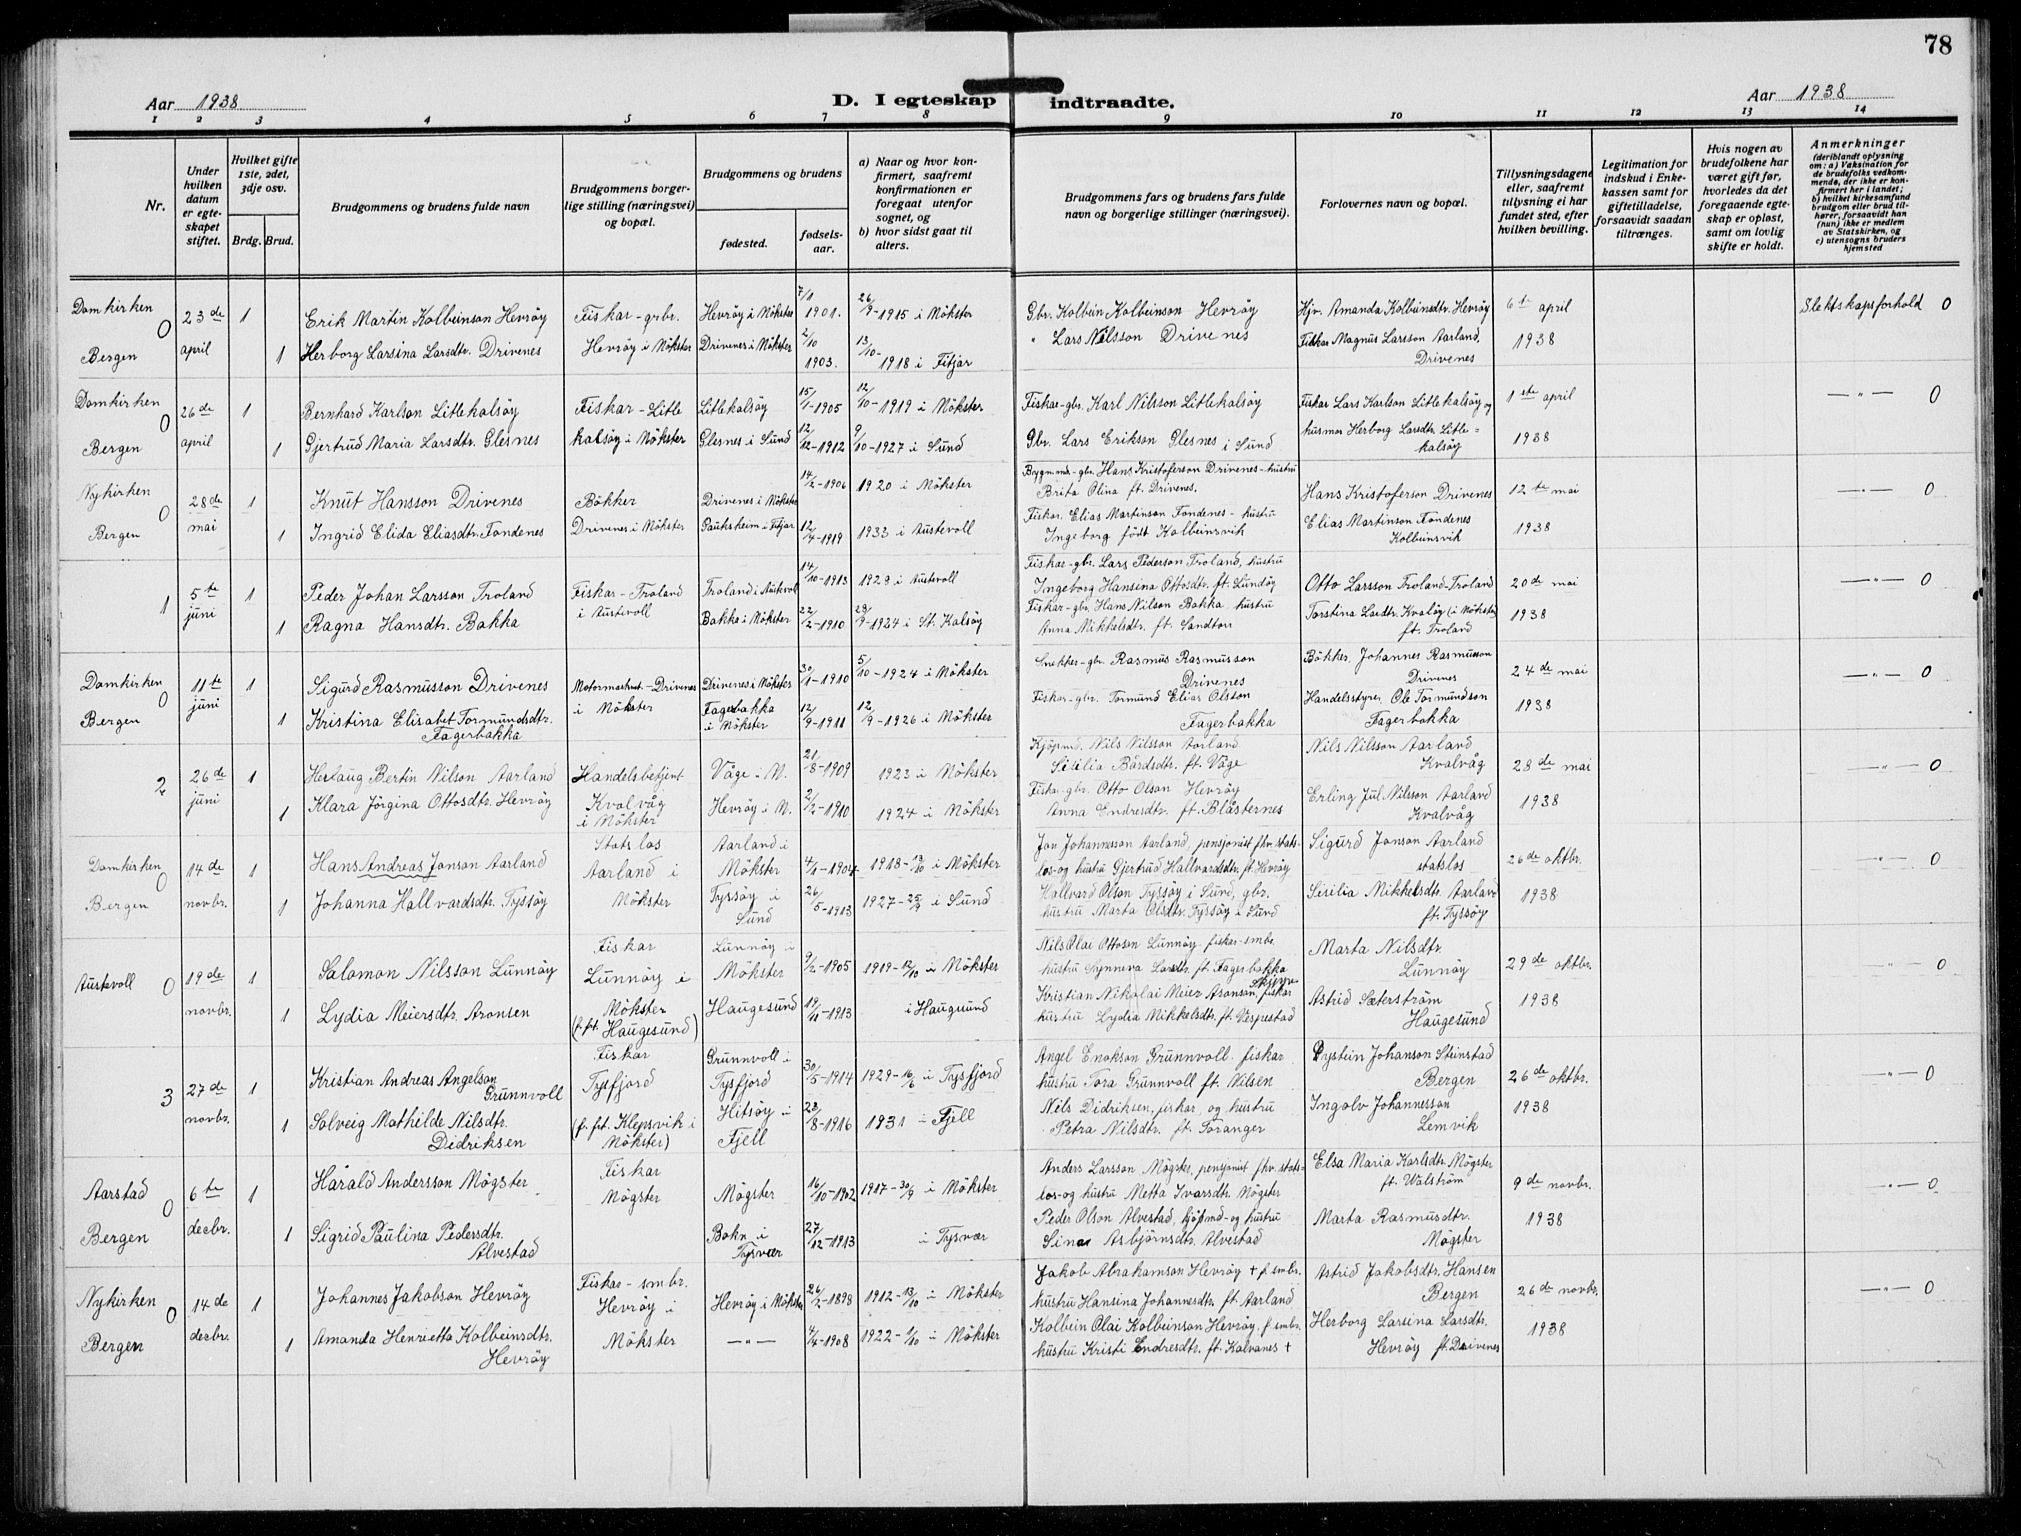 78
Aar 1938
D. I egteskap indtraadte.
Aar 1938
1 2 3 4 5 6 7 8 9 10 11 12 13 14
Nr.
Under hvilken datum er egteskapet stiftet.
Hvilket gifte 1ste, 2det, 3dje osv.
Brdg. Brud.
Brudgommens og brudens fulde navn
Brudgommens borgerlige stilling (næringsvei) og bopæl.
Brudgommens og brudens
fødested.
fødselsaar.
a) Naar og hvor konfirmert, saafremt konfirmationen er foregaat utenfor sognet, og
b) hvor sidst gaat til alters.
Brudgommens fars og brudens fars fulde navn og borgerlige stillinger (næringsvei).
Forlovernes navn og bopæl.
Tillysningsdagene eller, saafremt tillysning ei har fundet sted, efter hvilken bevilling.
Legitimation for indskud i Enkekassen samt for giftetilladelse, forsaavidt saadan tiltrænges.
Hvis nogen av brudefolkene har været gift før, hvorledes da det foregaaende egteskap er opløst, samt om lovlig skifte er holdt.
Anmerkninger
(deriblandt oplysning om: a) Vaksination for de brudefolks vedkommende, der ikke er konfirmert her i landet; b) hvilket kirkesamfund brudgom eller brud tilhører, forsaavidt han (hun) ikke er medlem av Statskirken, og c) utensogns bruders hjemsted
Domkirken 0 Bergen
23de april
1
Erik Martin Kolbeinson Hevröy
Fiskar - grbr. Hevröy i Mökster
Hevröy i Mökster
7/1 1901.
26/9-1915 i Mökster
1
Herborg Larsina Larsdtr. Drivenes
Drivenes i Mökster
2/10 1903.
13/10-1918 i Fitjar
Gbr. Kolbein Kolbeinson Hevröy
" Lars Nilsson Drivenes
Hjv. Amanda Kolbeinsdtr. Hevröy
Fiskar Magnus Larsson Aarland, Drivenes
6te april 1938
Slektskapsforhold 0
Domkirken 0 Bergen
26de april
1
Bernhard Karlson Litlekalsöy
Fiskar - Litlekalsöy i Mökster
Litlekalsöy
15/1-1905
12/10-1919 i Mökster
1
Gjertrud Maria Larsdtr. Glesnes
Glesnes i Sund
12/12-1912
9/10-1927 i Sund
Fiskar-gbr. Karl Nilsson Litlekalsöy
Gbr. Lars Erikson Glesnes i Sund
Fiskar Lars Karlson Litlekalsöy og
husmor Herborg Larsdtr. Litlekalsöy
1ste april 1938
— " — 0
Nykirken 0 Bergen
28de mai
1
Knut Hansson Drivenes
Bökker Drivenes i Mökster
Drivenes i Mökster
14/2-1906
1920 i Mökster
1
Ingrid Elida Eliasdtr. Fondenes
Pauksheim i Fitjar
12/4-1919
1933 i Austevoll
Bygmnd-gbr. Hans Kristoferson Drivenes - hustru
Brita Olina ft. Drivenes.
Fiskar. Elias Martinson Fondenes - hustru
Ingeborg född Kolbeinsvik
Hans Kristoferson Drivenes
Elias Martinson Fondenes Kolbeinsvik
12te mai 1938
— " — 0
1
5te juni
1
Peder Johan Larsson Troland
Fiskar - Troland i Austevoll
Troland i Austevoll
14/10-1913
1929 i Austevoll
1
Ragna Hansdtr. Bakka
Bakka i Mökster
22/2-1910
28/9-1924 i St. Kalsöy
Fiskar-gbr. Lars Pederson Troland, hustru
Ingeborg Hansina Ottosdtr. ft. Lundöy
Fiskar-gbr. Hans Nilson Bakka hustru
Anna Mikkelsdtr. ft. Sandtorv
Otto Larsson Troland-Troland
Torstina Larsdtr. Kvalöy (i Mökster) ft. Troland
20de mai 1938
— " — 0
Domkirken 0 Bergen
11te juni
1
Sigurd Rasmusson Drivenes
Motormaskinst. - Drivenes i Mökster
Drivenes i Mökster
30/1-1910
5/10-1924 i Mökster
1
Kristina Elisabet Tormundsdtr. Fagerbakka
Fagerbakka i Mökster
12/9-1911
12/9-1926 i Mökster
Snekker-gbr. Rasmus Rasmusson Drivenes
Fiskar-gbr. Tormund Elias Olson Fagerbakka
Bökker. Johannes Rasmusson Drivenes
Handelsstyrer. Ole Tormundson Fagerbakka
24de mai 1938
— " — 0
2
26de juni
1
Herlaug Bertin Nilson Aarland
Handelsbetjent Kvalvåg i Mökster
Våge i M.
21/8-1909
1923 i Mökster
1
Klara Jörgina Ottosdtr. Hevröy
Hevröy i M.
2/2-1910
1924 i Mökster
Kjöpmd. Nils Nilsson Aarland
Sesilia Bårdsdtr. ft. Våge
Fiskar-gbr. Otto Olson Hevröy
Anna Endresdtr. ft. Blåsternes
Nils Nilsson Aarland Kvalvåg
Erling Jul Nilsson Aarland Kvalvåg
28de mai 1938
— " — 0
Domkirken 0 Bergen
14de novbr.
1
Hans Andreas Jonson Aarland
Statslos Aarland i Mökster
Aarland i Mökster
4/1-1904
1918-13/10 i Mökster
1
Johanna Hallvardsdtr. Tyssöy
Tyssöy i Sund
26/5-1913
1927-25/9 i Sund
Jon Johannesson Aarland, pensjonist fhv. stats-
los-og hustru Gjertrud Hallvardsdtr. ft. Hevröy
Hallvard Olson Tyssöy i Sund, gbr.
hustru Marta Olsdtr. Tyssöy i Sund
Sigurd Jonson Aarland statslos
Sesilia Mikkelsdtr. Aarland ft. Tyssöy
26de oktbr. 1938
— " — 0
Austevoll 0
19de novbr.
1
Salomon Nilsson Lunnöy
Fiskar Lunnöy i Mökster
(f. frt. Haugesund)
Lunnöy i Mökster
9/2-1905
1919-12/10 i Mökster
1
Lydia Meiersdtr. Aronsen
Haugesund
19/11-1913
i Haugesund
Nils Olai Ottosen Lunnöy. fiskar-smbr.
hustru Synneva Larsdtr. ft. Fagerbakka
Kristian Nikolai Meier Aronson, fiskar
hustru Lydia Mikkelsdtr. ft. Vespestad
Marta Nilsdtr. Lunnöy
Astrid Sæterström Haugesund
29de oktbr. 1938
— " — 0
3
27de novbr.
1
Kristian Andreas Angelson Grunnvoll
Fiskar Tysfjord
(f. frt. Klepsvik i Mökster)
Grunnvoll i Tysfjord
30/5-1914
1929-16/6 i Tysfjord
1
Solveig Mathilde Nilsdtr. Didriksen
Hitsöy i Fjell
23/8-1916
1931 i Fjell
Angel Enokson Grunnvoll. fiskar
hustru Tora Grunnvoll ft. Nilsen
Nils Didriksen, fiskar, og hustru
Petra Nilsdtr. ft. Toranger
Öystein Johanson Steinstad Bergen
Ingolv Johannesson Lemvik
26de oktbr. 1938
— " — 0
Aarstad 0 Bergen
6te decbr.
1
Harald Andersson Mögster
Fiskar Mögster
Mögster
16/10-1902
1917-30/9 i Mökster
1
Sigrid Paulina Pedersdtr. Alvestad
Bokn i Tysvær
27/12-1913
i Tysvær
Anders Larsson Mögster, pensjonist fhv. stats-
los-og hustru Metta Ivarsdtr. Mögster
Peder Olson Alvestad, kjöpmd-og hustru
Sina Asbjörnsdtr. Alvestad
Elsa Maria Karlsdtr. Mögster ft. Walström
Marta Rasmusdtr. Mögster
9de novbr. 1938
— " — 0
Nykirken 0 Bergen
14de decbr.
1
Johannes Jakobson Hevröy
Fiskar - smbr. Hevröy i Mökster
Hevröy i Mökster
26/2-1898
1912-13/10 i Mökster
1
Amanda Henrietta Kolbeinsdtr. Hevröy
— " —
4/4-1908
1922-1/10 i Mökster
Jakob Abrahamson Hevröy + f. smbr.
hustru Hansina Johannesdtr. ft. Aarland
Kolbein Olai Kolbeinson Hevröy. f. smbr.
hustru Kristi Endresdtr. ft. Kalvanes +
Astrid Jakobsdtr. Hansen Bergen
Herborg Larsina Larsdtr. Hevröy ft. Drivenes
26de novbr. 1938
— " — 0